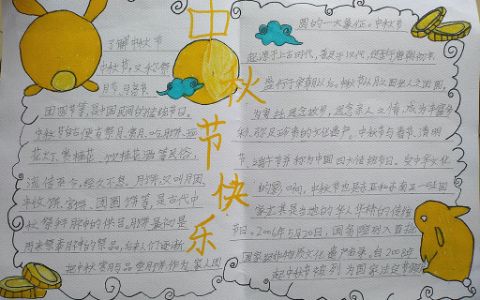 中秋节快乐
了解中秋节
中秋节,又称祭
月节、团
团圆节等,是中国民间的传统节日。
中秋节自古便有祭月、赏月、吃月饼、玩
花灯、赏桂花、饮桂花酒等民俗,
流传至今,经久不息。月饼,又叫月团、
丰收饼、宫饼、团圆饼等,是古代中
秋祭拜月神的供品。月饼最初是
用来祭奉月神的祭品,后来人们逐渐
把中秋赏月与品尝月饼作为家人团
圆的一大象征。中秋节
起源于上古时代,普及于汉代,定型于唐朝初年
盛行于宋朝以后。中秋节以月之圆兆人之团圆,
为寄托思念故乡,思念亲人之情,成为丰富多
彩、弥足珍贵的文化遗产。中秋节与春节、清明
节、端午节并称为中国四大传统节日。受中华文化
的影响,中秋节也是东亚和东南亚一些国
家尤其是当地的华人华侨的传统
节日。2006年5月20日,国务院列入首批
国家级非物质文化遗产名录。自2008年
起中秋节被列为国家法定节假日